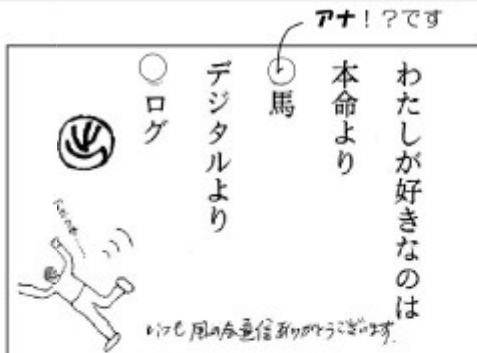 アナ！？です
わたしが好きなのは
本命より
○馬
デジタルより
○ログ
いつも風の会通信ありがとうございます